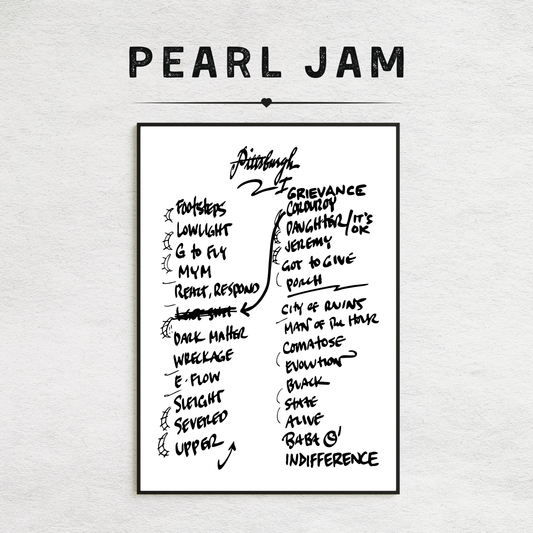 PEARL JAM
Pittsburgh
I
FOOTSTEPS
LOWLIGHT
G to FLY
MYM
REACT, RESPOND
DARK MATTER
WRECKAGE
E·FLOW
SLEIGHT
SEVERED
UPPER
GRIEVANCE
CORDUROY
DAUGHTER/IT'S OK
JEREMY
GOT to GIVE
PORCH
CITY OF RUINS
MAN OF the HOUR
COMATOSE
EVOLUTION
BLACK
STATE
ALIVE
BABA O'
INDIFFERENCE